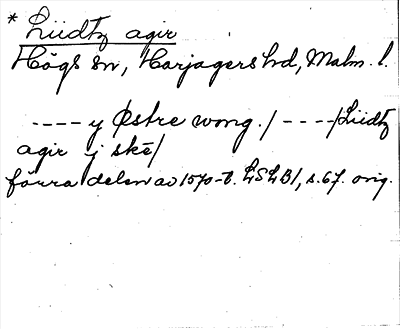 * Lüdtz agir
Högs sn, Harjagers hd, Malm. l.
---- y Østre wong. / ---- / Lüdtz
agir y skē /
förra delen av 1570-t. LSLB1, s. 67. orig.